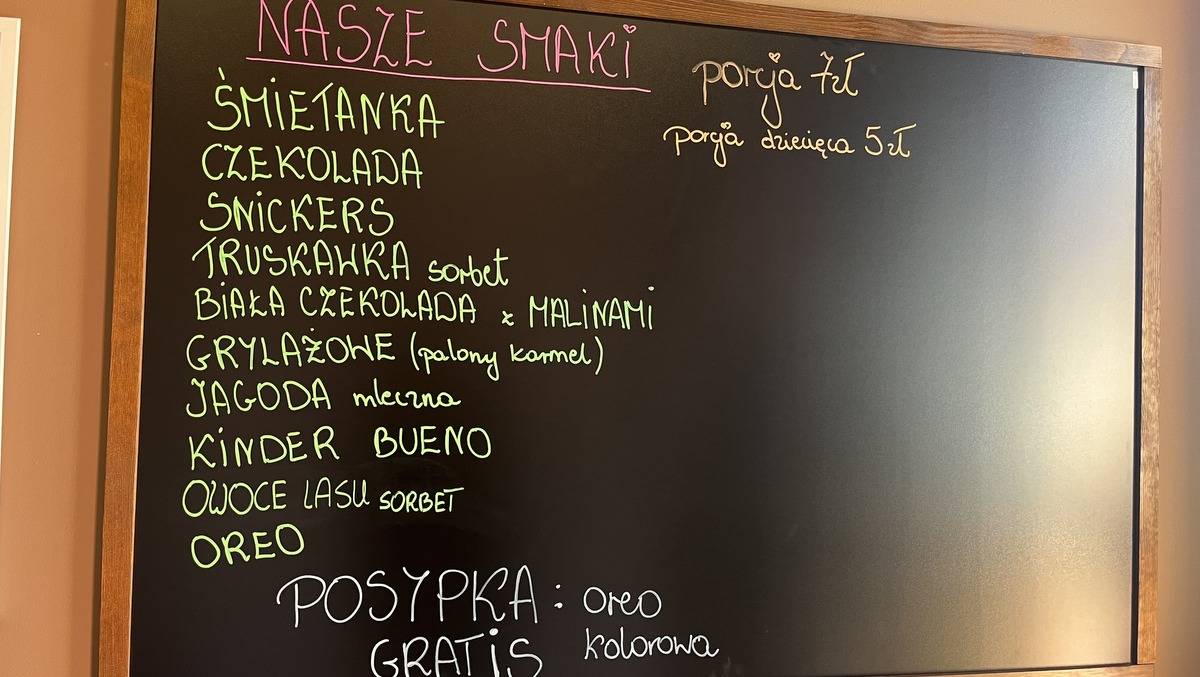 NASZE SMAKi
ŚMIETANKA
CZEKOLADA
SNiCKERS
TRUSKAWKA sorbet
BiAŁA CZEKOLADA z MALiNAMi
GRYLAŻOWE (palony karmel)
JAGODA mleczna
KiNDER BUENO
OWOCE LASU SORBET
OREO
POSYPKA: oreo
GRATiS kolorowa
porcja 7zł
porcja dziecięca 5zł